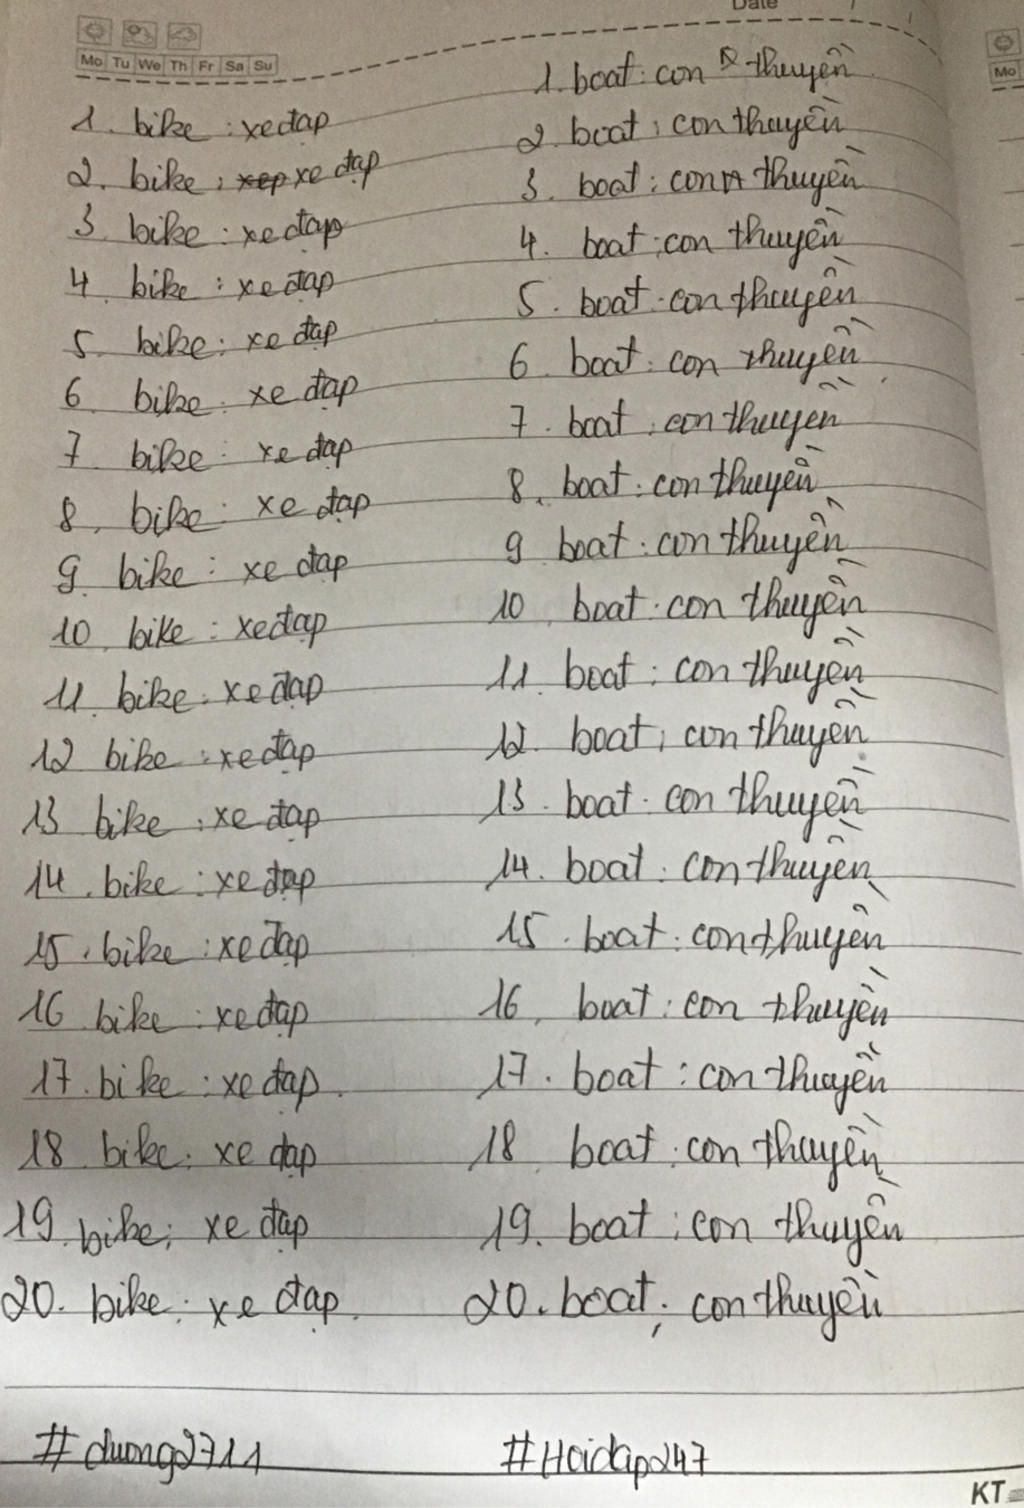 Date
Mo Tu We Th Fr Sa Su
Mo
1. bike : xe đạp
2. bike : xep xe đạp
3. bike : xe đạp
4. bike : xe đạp
5. bike : xe đạp
6. bike : xe đạp
7. bike : xe đạp
8. bike : xe đạp
9. bike : xe đạp
10. bike : xe đạp
11. bike : xe đạp
12 bike : xe đạp
13 bike : xe đạp
14. bike : xe đạp
15. bike : xe đạp
16 bike : xe đạp
17. bike : xe đạp.
18 bike : xe đạp
19. bike ; xe đạp
20. bike : xe đạp.
1. boat : con thuyền
2. boat : con thuyền
3. boat : con thuyền
4. boat : con thuyền
5. boat : con thuyền
6 boat : con thuyền
7. boat : con thuyền
8. boat : con thuyền
9 boat : con thuyền
10. boat : con thuyền
11. boat : con thuyền
12. boat : con thuyền
13. boat : con thuyền
14. boat : con thuyền
15. boat : con thuyền
16. boat : con thuyền
17. boat : con thuyền
18 boat : con thuyền
19. boat : con thuyền
20. boat ; con thuyền
#duong2711
#Hoidap247
KT